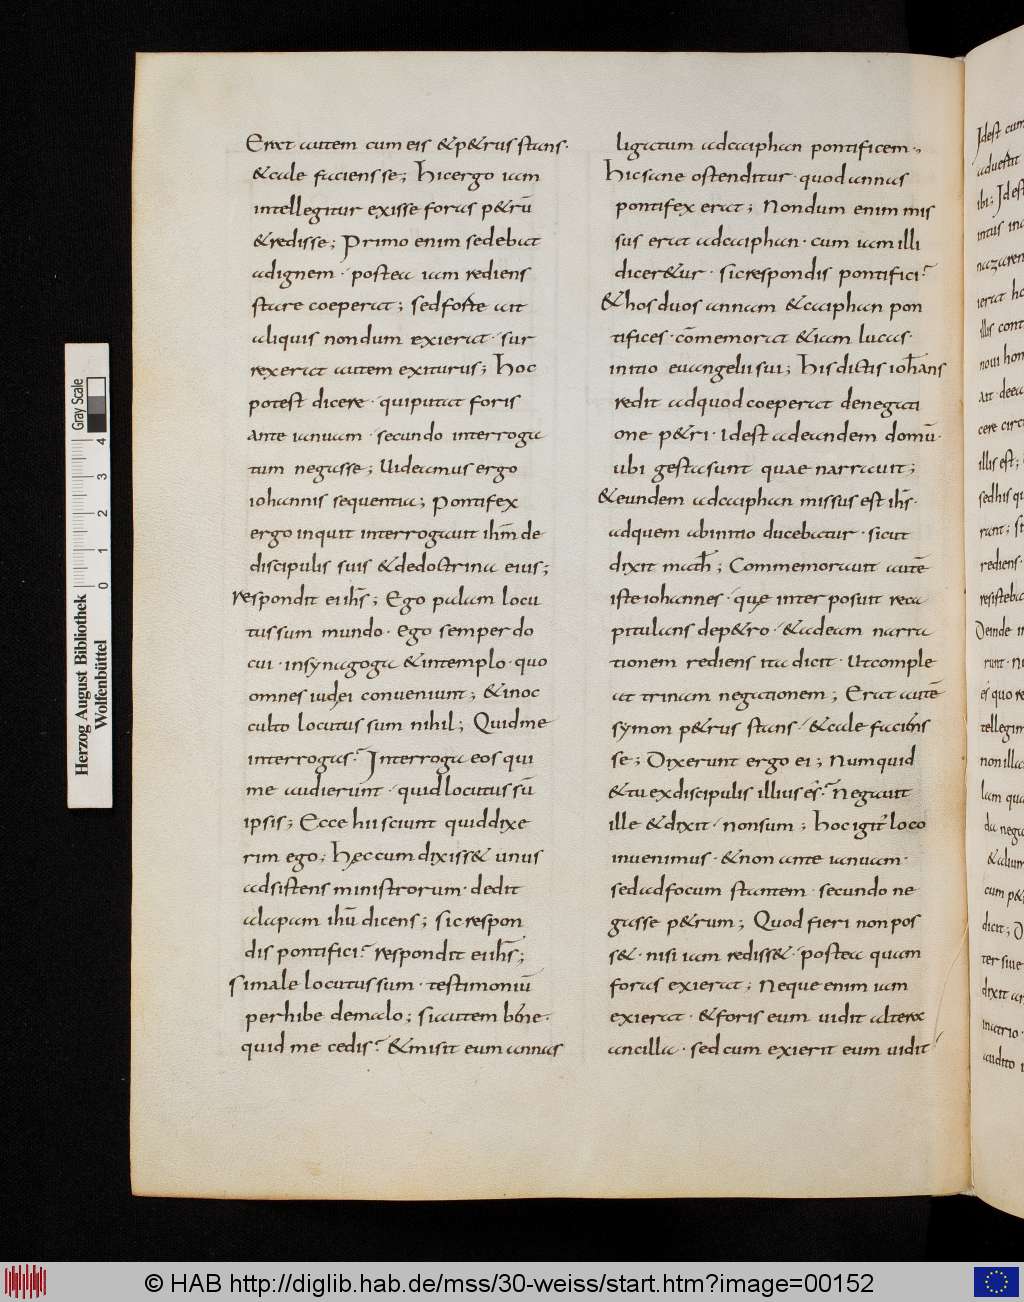 Erat autem cum eis & p&rus stans·
& cale faciens se; Hic ergo iam
intellegitur exisse foras p&rū
& redisse; Primo enim sedebat
ad ignem· postea iam rediens
stare coeperat; sed forte ait
aliquis nondum exierat· sur
rexerat autem exiturus; Hoc
potest dicere· qui putat foris
ante ianuam· secundo interroga
tum negasse; Uideamus ergo
iohannis sequentia; Pontifex
ergo inquit interrogauit ihm̄ de
discipulis suis & de doctrina eius;
respondit ei ihs̄; Ego palam locu
tus sum mundo· ego semper do
cui· in synagoga & in templo· quo
omnes iudęi conueniunt; & in oc
culto locutus sum nihil; Quid me
interrogas? Interroga eos qui
me audierunt· quid locutus sū
ipsis; Ecce hii sciunt quid dixe
rim ego; hęc cum dixiss& unus
adsistens ministrorum· dedit
alapam ihū dicens; sic respon
dis pontifici? respondit ei ihs̄;
Si male locutus sum· testimoniū
perhibe de malo; si autem bn̄e·
quid me cedis? & misit eum annas
ligatum ad caiphan pontificem·,
Hic sane ostenditur· quod annas
pontifex erat; Nondum enim mis
sus erat ad caiphan· cum iam illi
dicer&ur· sic respondis pontifici?
& hos duos annam & caiphan pon
tifices· cōmemorat &iam lucas·
initio euangelii sui; his dictis ioħans
redit ad quod coeperat de negati
one p&ri· id est ad eandem domū·
ubi gesta sunt quae narrauit;
& eundem ad caiphan missus est ihs̄·
ad quem ab initio ducebatur· sicut
dixit matħ; Commemorauit autē
iste iohannes· quę interposuit reca
pitulans de p&ro· & ad eam narra
tionem rediens ita dicit· Ut comple
at trinam negationem; Erat autē
symon p&rus stans· & cale faciens
se; Dixerunt ergo ei; Numquid
& tu ex discipulis illius es̄? Negauit
ille & dixit· non sum; hoc igit̄ loco
inuenimus· & non ante ianuam·
sed ad focum stantem· secundo ne
gasse p&rum; Quod fieri non pos
s&· nisi iam rediss&· postea quam
foras exierat; Neque enim iam
exierat· & foris eum uidit altera
ancilla· sed cum exierit eum uidit
Idest cum
ibi; Idest
intus in
nazaren
ierat
illis
noui hom
ait· deea
cere
illis est;
sed his qu
rant; si
rediens·
resisteba
Deinde
runt·
quo re
tellegim
non illa
lam qua
da nega
& alium
cum p&
dicit;
ter siue
dixit
inatrio·
audito
Herzog August Bibliothek
Wolfenbüttel
Gray Scale
0 1 2 3 4
© HAB http://diglib.hab.de/mss/30-weiss/start.htm?image=00152